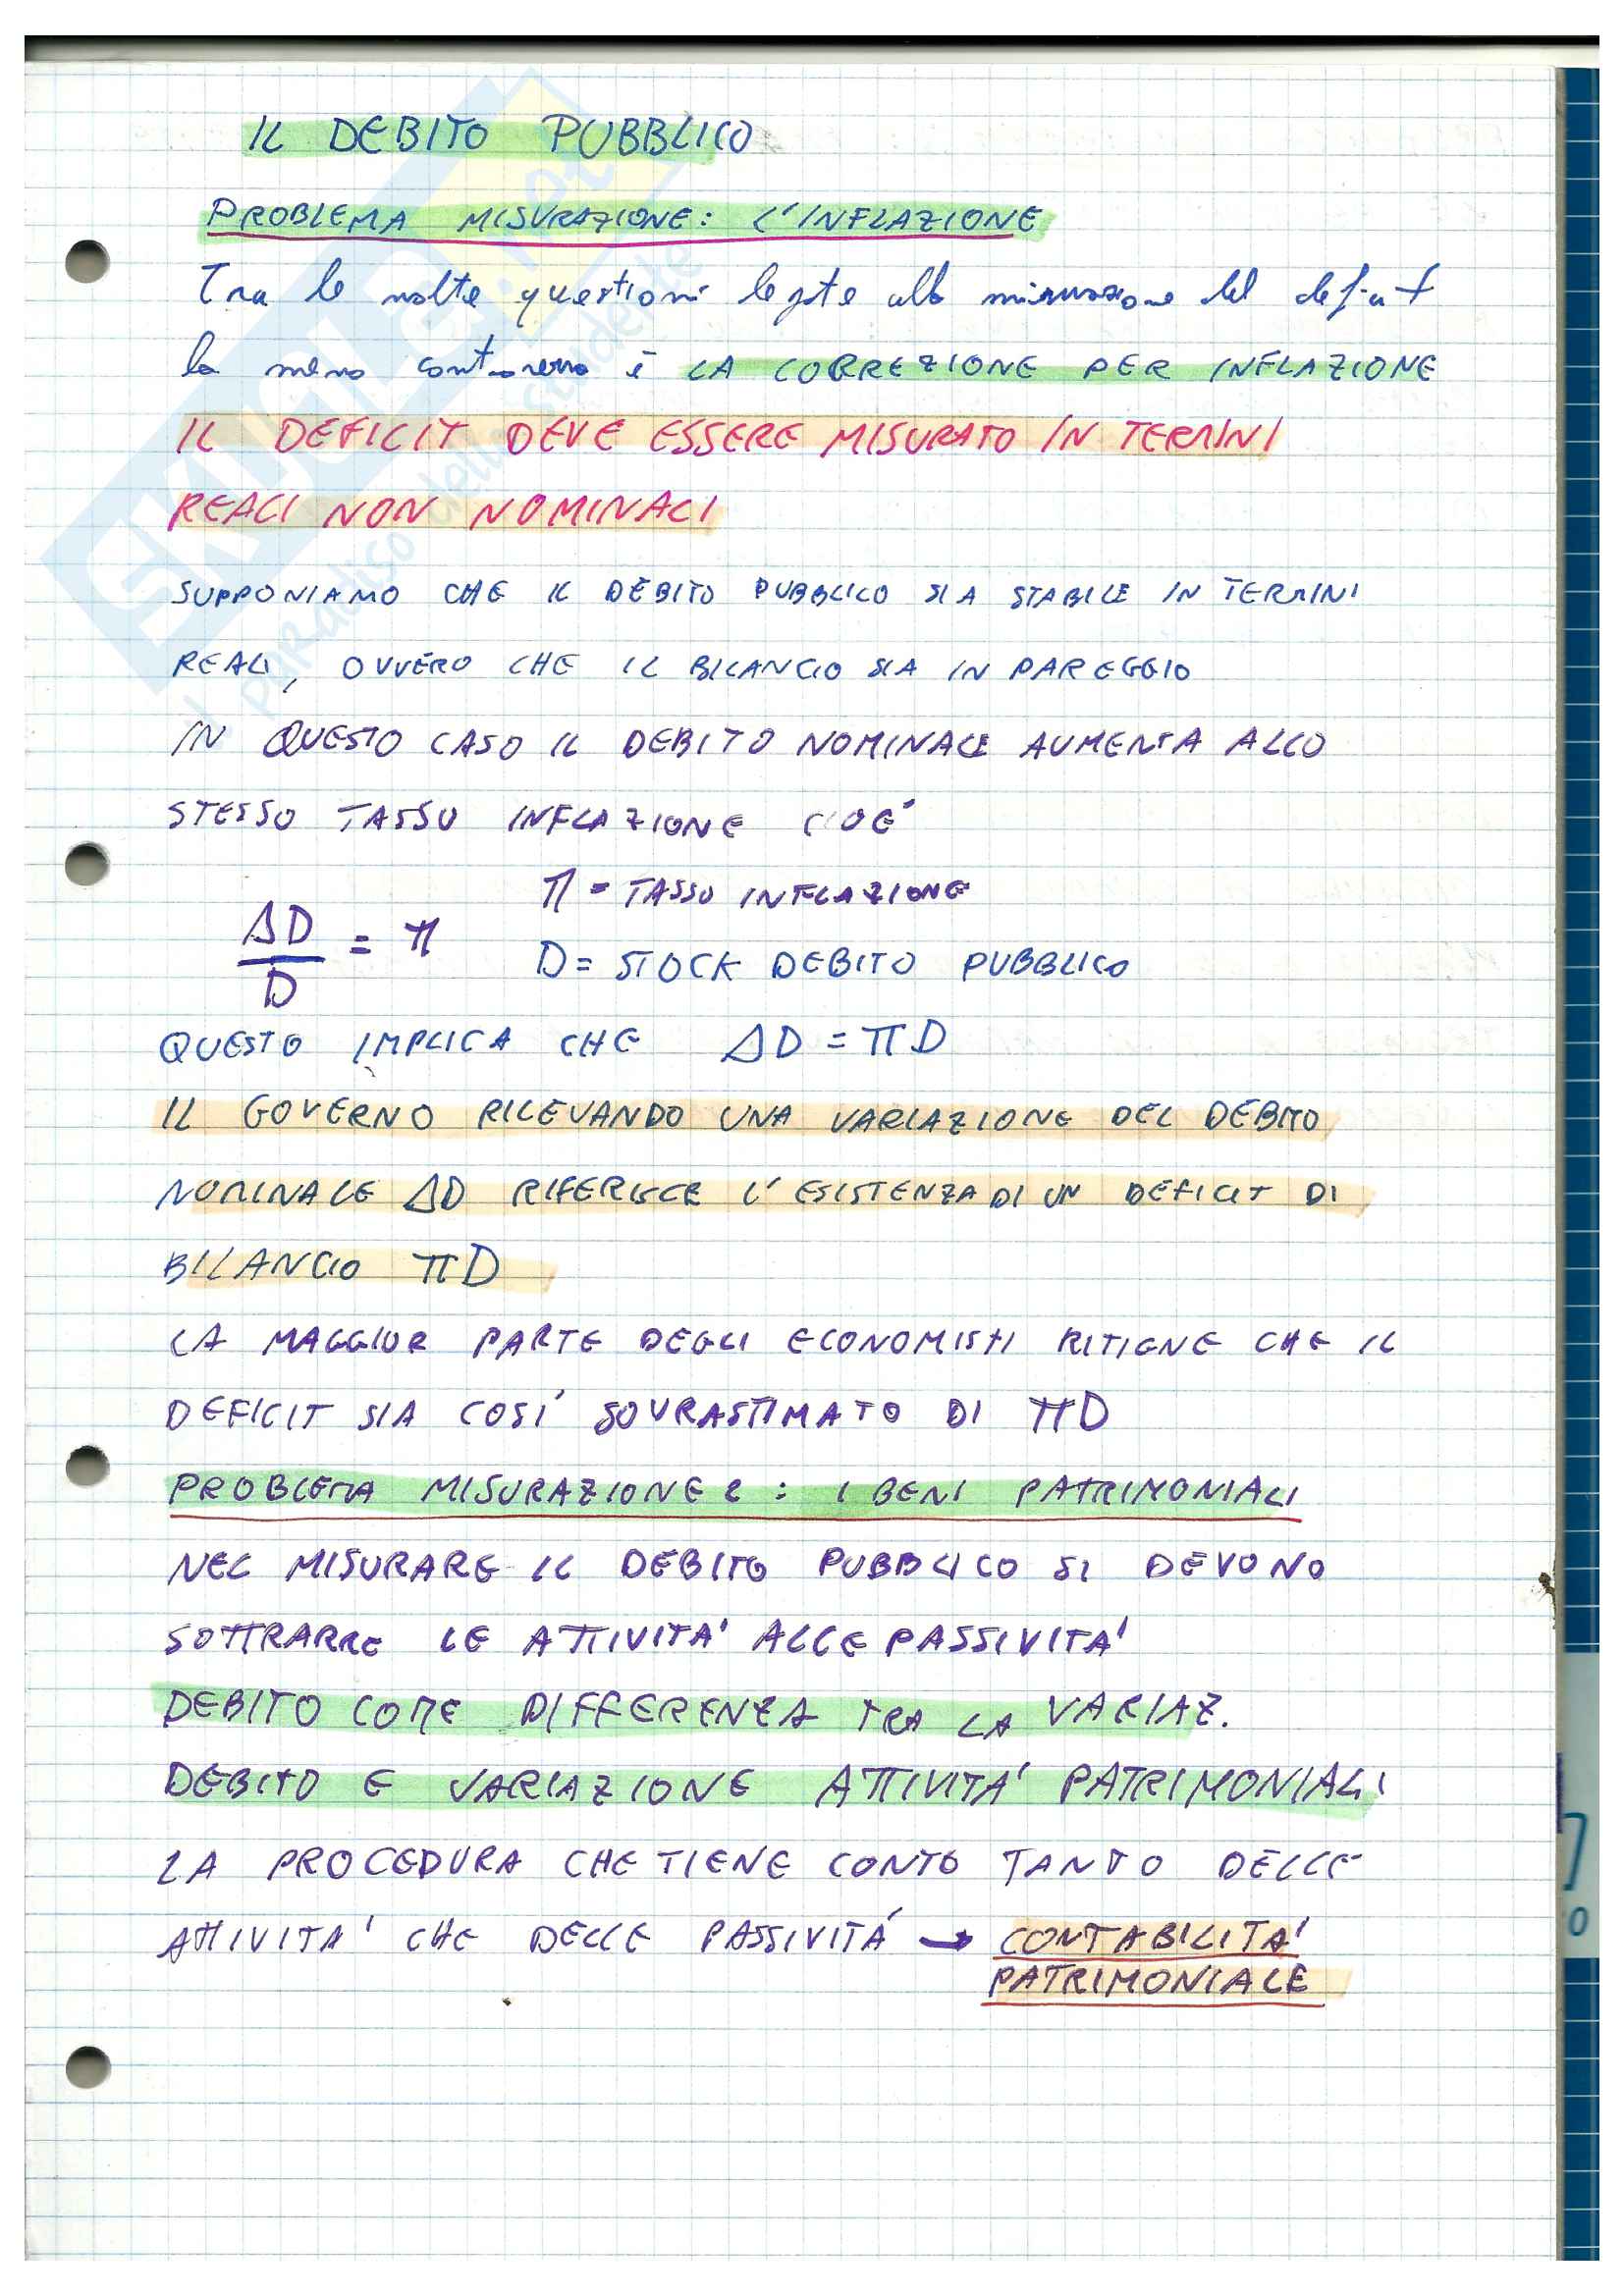 IL DEBITO PUBBLICO
PROBLEMA MISURAZIONE: L'INFLAZIONE
Tra le molte questioni legate alla misurazione del deficit
la meno controversa è LA CORREZIONE PER INFLAZIONE
IL DEFICIT DEVE ESSERE MISURATO IN TERMINI
REALI NON NOMINALI
SUPPONIAMO CHE IL DEBITO PUBBLICO SIA STABILE IN TERMINI
REALI, OVVERO CHE IL BILANCIO SIA IN PAREGGIO
IN QUESTO CASO IL DEBITO NOMINALE AUMENTA ALLO
STESSO TASSO INFLAZIONE CIOE'
ΔD/D = π
π = TASSO INFLAZIONE
D = STOCK DEBITO PUBBLICO
QUESTO IMPLICA CHE ΔD = πD
IL GOVERNO RILEVANDO UNA VARIAZIONE DEL DEBITO
NOMINALE ΔD RIFERISCE L'ESISTENZA DI UN DEFICIT DI
BILANCIO πD
LA MAGGIOR PARTE DEGLI ECONOMISTI RITIENE CHE IL
DEFICIT SIA COSI' SOVRASTIMATO DI πD
PROBLEMA MISURAZIONE 2 : I BENI PATRIMONIALI
NEL MISURARE IL DEBITO PUBBLICO SI DEVONO
SOTTRARRE LE ATTIVITA' ALLE PASSIVITA'
DEBITO COME DIFFERENZA TRA LA VARIAZ.
DEBITO E VARIAZIONE ATTIVITA' PATRIMONIALI
LA PROCEDURA CHE TIENE CONTO TANTO DELLE
ATTIVITA' CHE DELLE PASSIVITÁ → CONTABILITA'
PATRIMONIALE